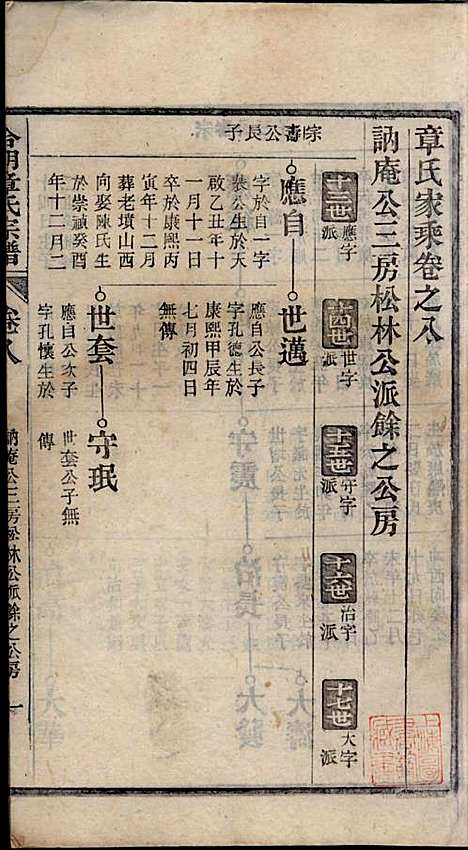 章氏家乘卷之八
訥庵公三房松林公派餘之公房
十三世 應字派
十四世 世字派
十五世 守字派
十六世 治字派
十七世 大字派
宗壽公長子
應自
字於自一字
裴公生於天
啟乙丑年十
一月十一日
卒於康熙丙
寅年十二月
葬老墳山西
向娶陳氏生
於崇禎癸酉
年十二月二
世邁
應自公長子
字孔德生於
康熙甲辰年
七月初四日
無傳
世套
應自公次子
字孔懷生於
守珉
世套公子無
傳
章氏宗譜
卷八
訥庵公三房松林公派餘之公房
一